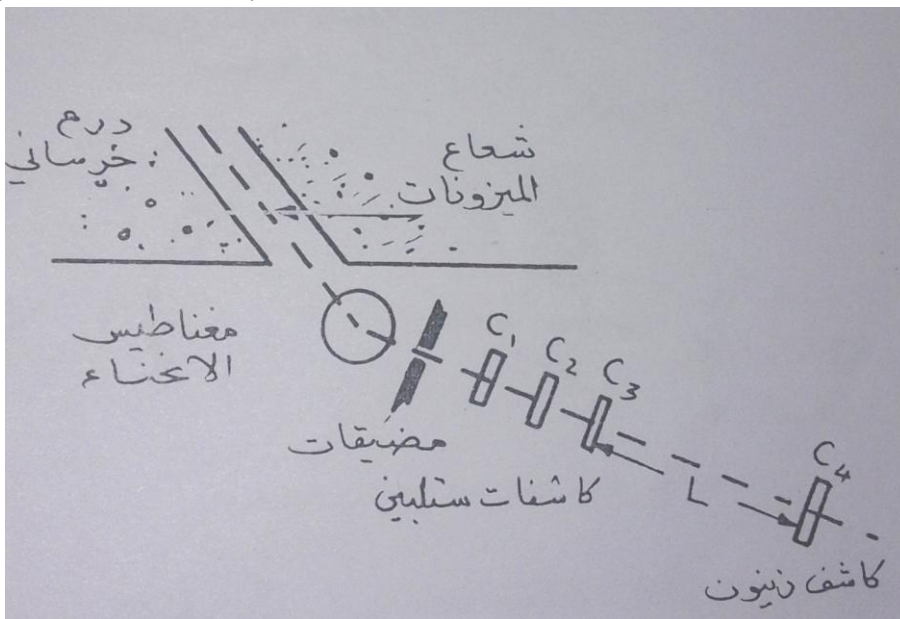 درع
خرساني
شعاع
الميزونات
مغناطيس
الانحناء
C1
C2
C3
مضيقات
كاشفات ستلبين
L
C4
كاشف زينون